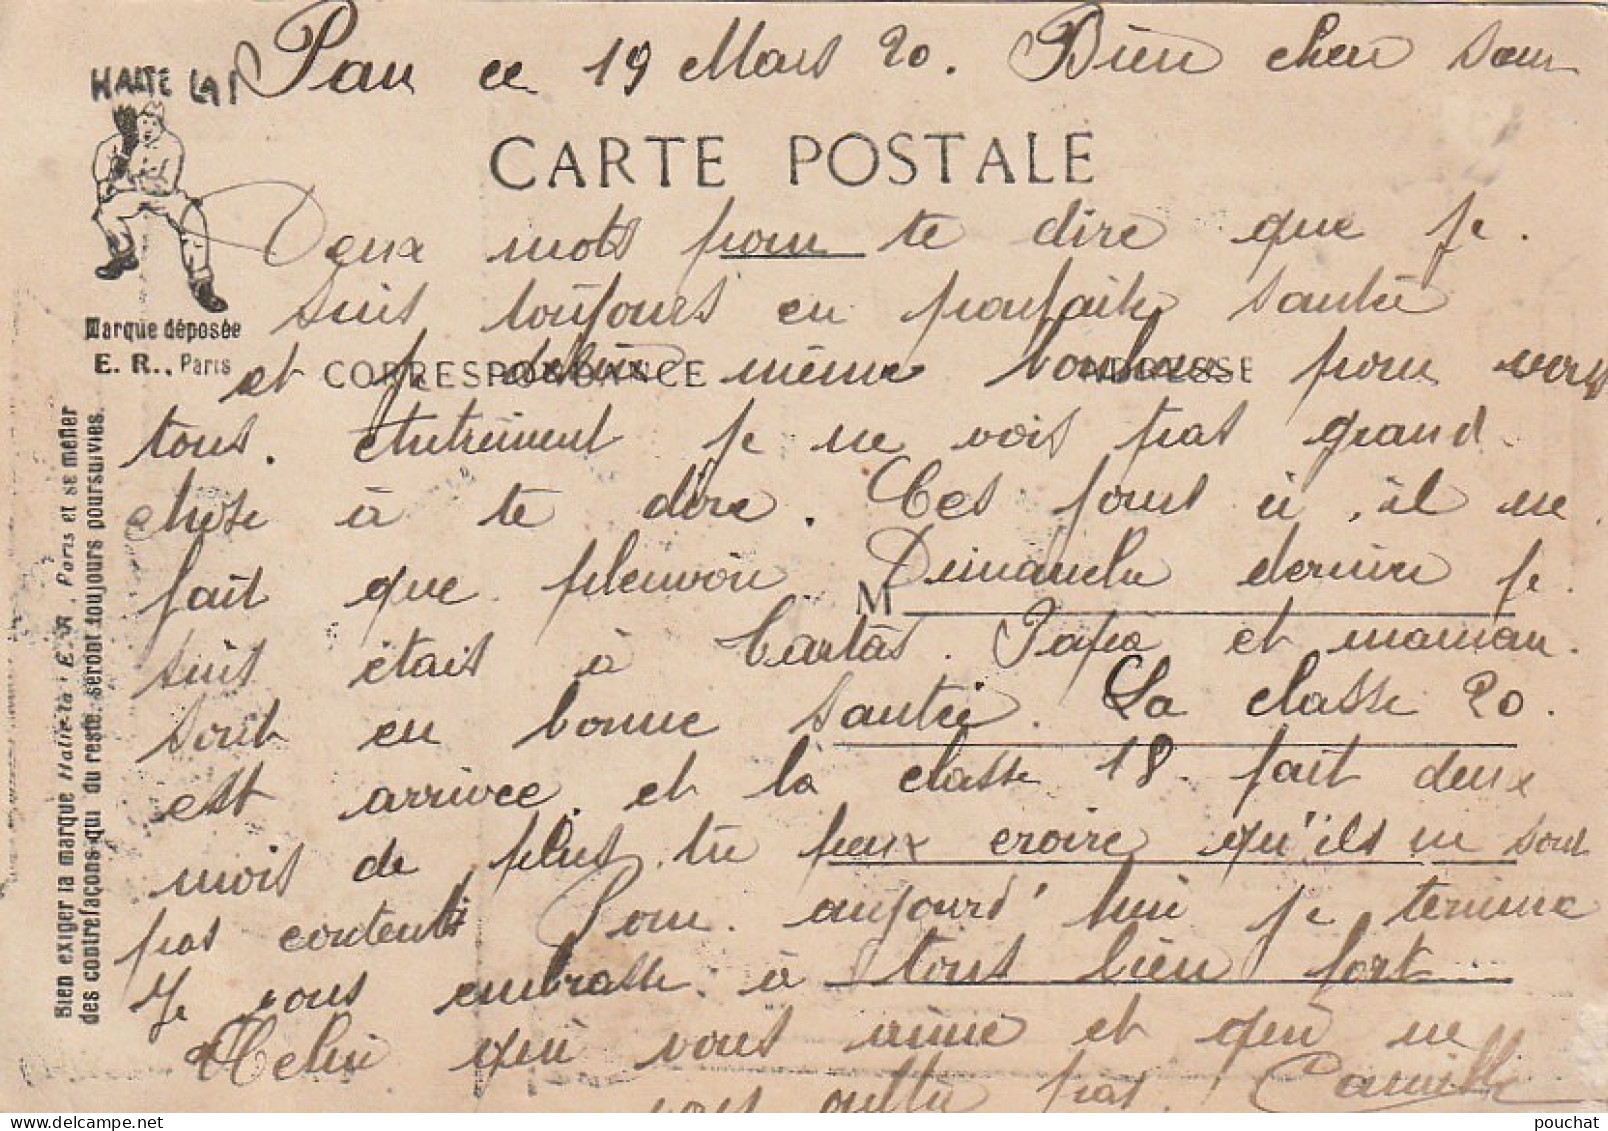 Pau ce 19 Mars 20. Bien cher sœur
HALTE LA!
CARTE POSTALE
Deux mots pour te dire que je.
suis toujours en parfaite santé
Marque déposée
E. R., Paris
CORRESPONDANCE
ADRESSE
et je désire même bonheur pour vous
tous. Autrement je ne vois pas grand
chose à te dire. Ces jours ci, il ne
fait que pleuvoir. Dimanche dernier je
M
suis étais à Castas. Papa et maman.
sont en bonne santée. La classe 20.
est arrivée. et la classe 18 fait deux
mois de plus. tu peux croire qu'ils ne sont
pas contents. Pour aujourd'hui je termine
Je vous embrasse à tous bien fort
Celui qui vous aime et qui ne
vous oublie pas. Camille
Bien exiger la marque Halte-là ! E.R. Paris et se méfier
des contrefaçons qui du reste, seront toujours poursuivies.
pouchat